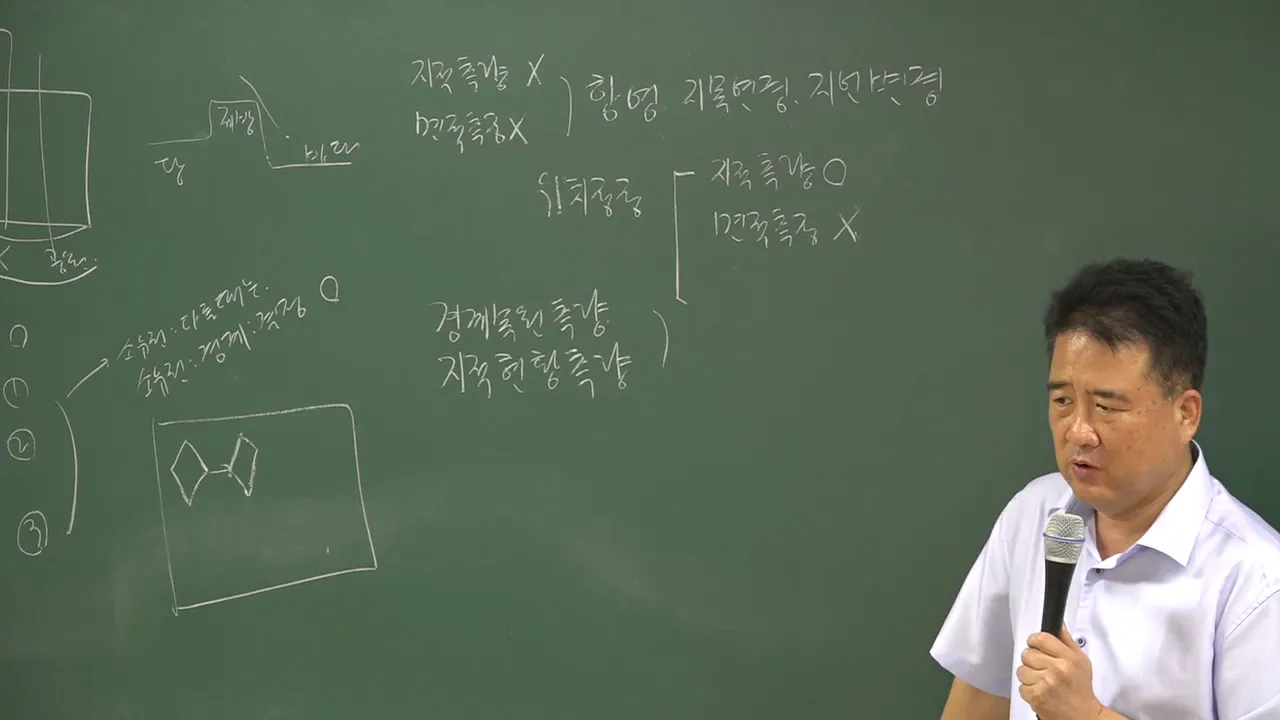 지적측량 X
면적측정 X
합병. 지목변경. 지번변경
제방
땅
바다
위치정정
지적측량 O
면적측정 X
소유권: 다툴때는.
소유권: 경계: 결정 O
경계복원측량
지적현황측량
①
②
③